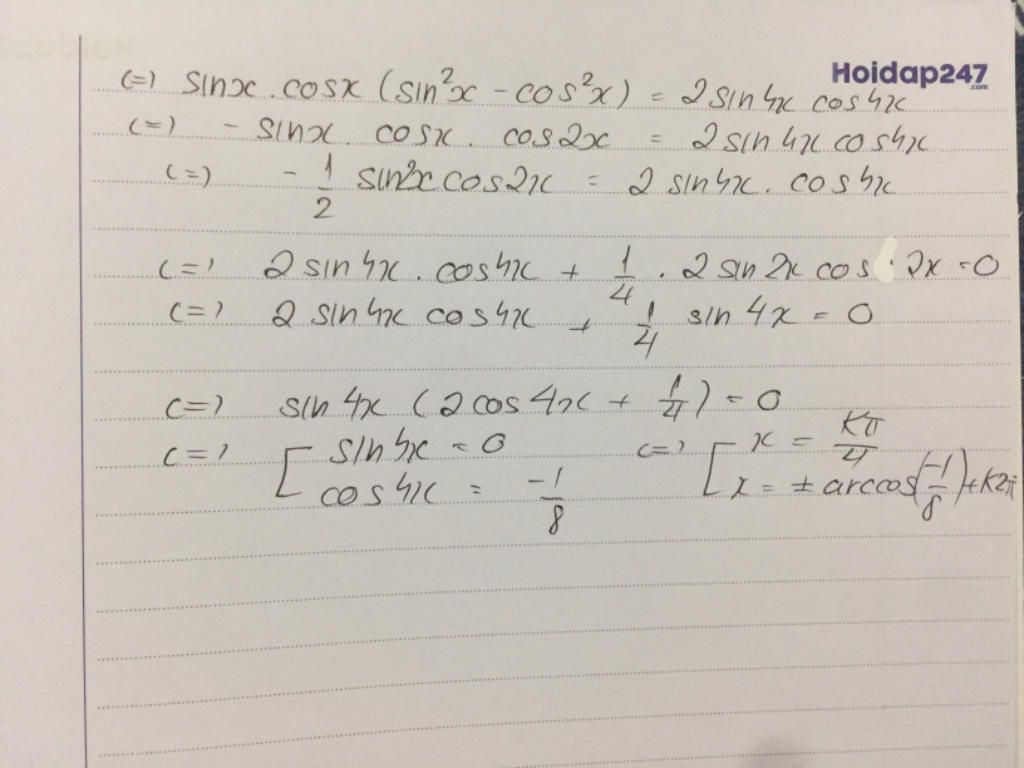 Hoidap247
.com
(=) sinx . cosx (sin²x - cos²x) = 2 sin4x cos4x
(=) - sinx . cosx . cos2x = 2 sin4x cos4x
(=) - 1/2 sin2x cos2x = 2 sin4x . cos4x
(=) 2 sin4x . cos4x + 1/4 . 2 sin2x cos 2x = 0
(=) 2 sin4x cos4x + 1/4 sin 4x = 0
(=) sin4x (2cos4x + 1/4) = 0
(=) [ sin4x = 0 (=) [ x = kπ/4
cos4x = -1/8 x = ± arccos(-1/8) + k2π